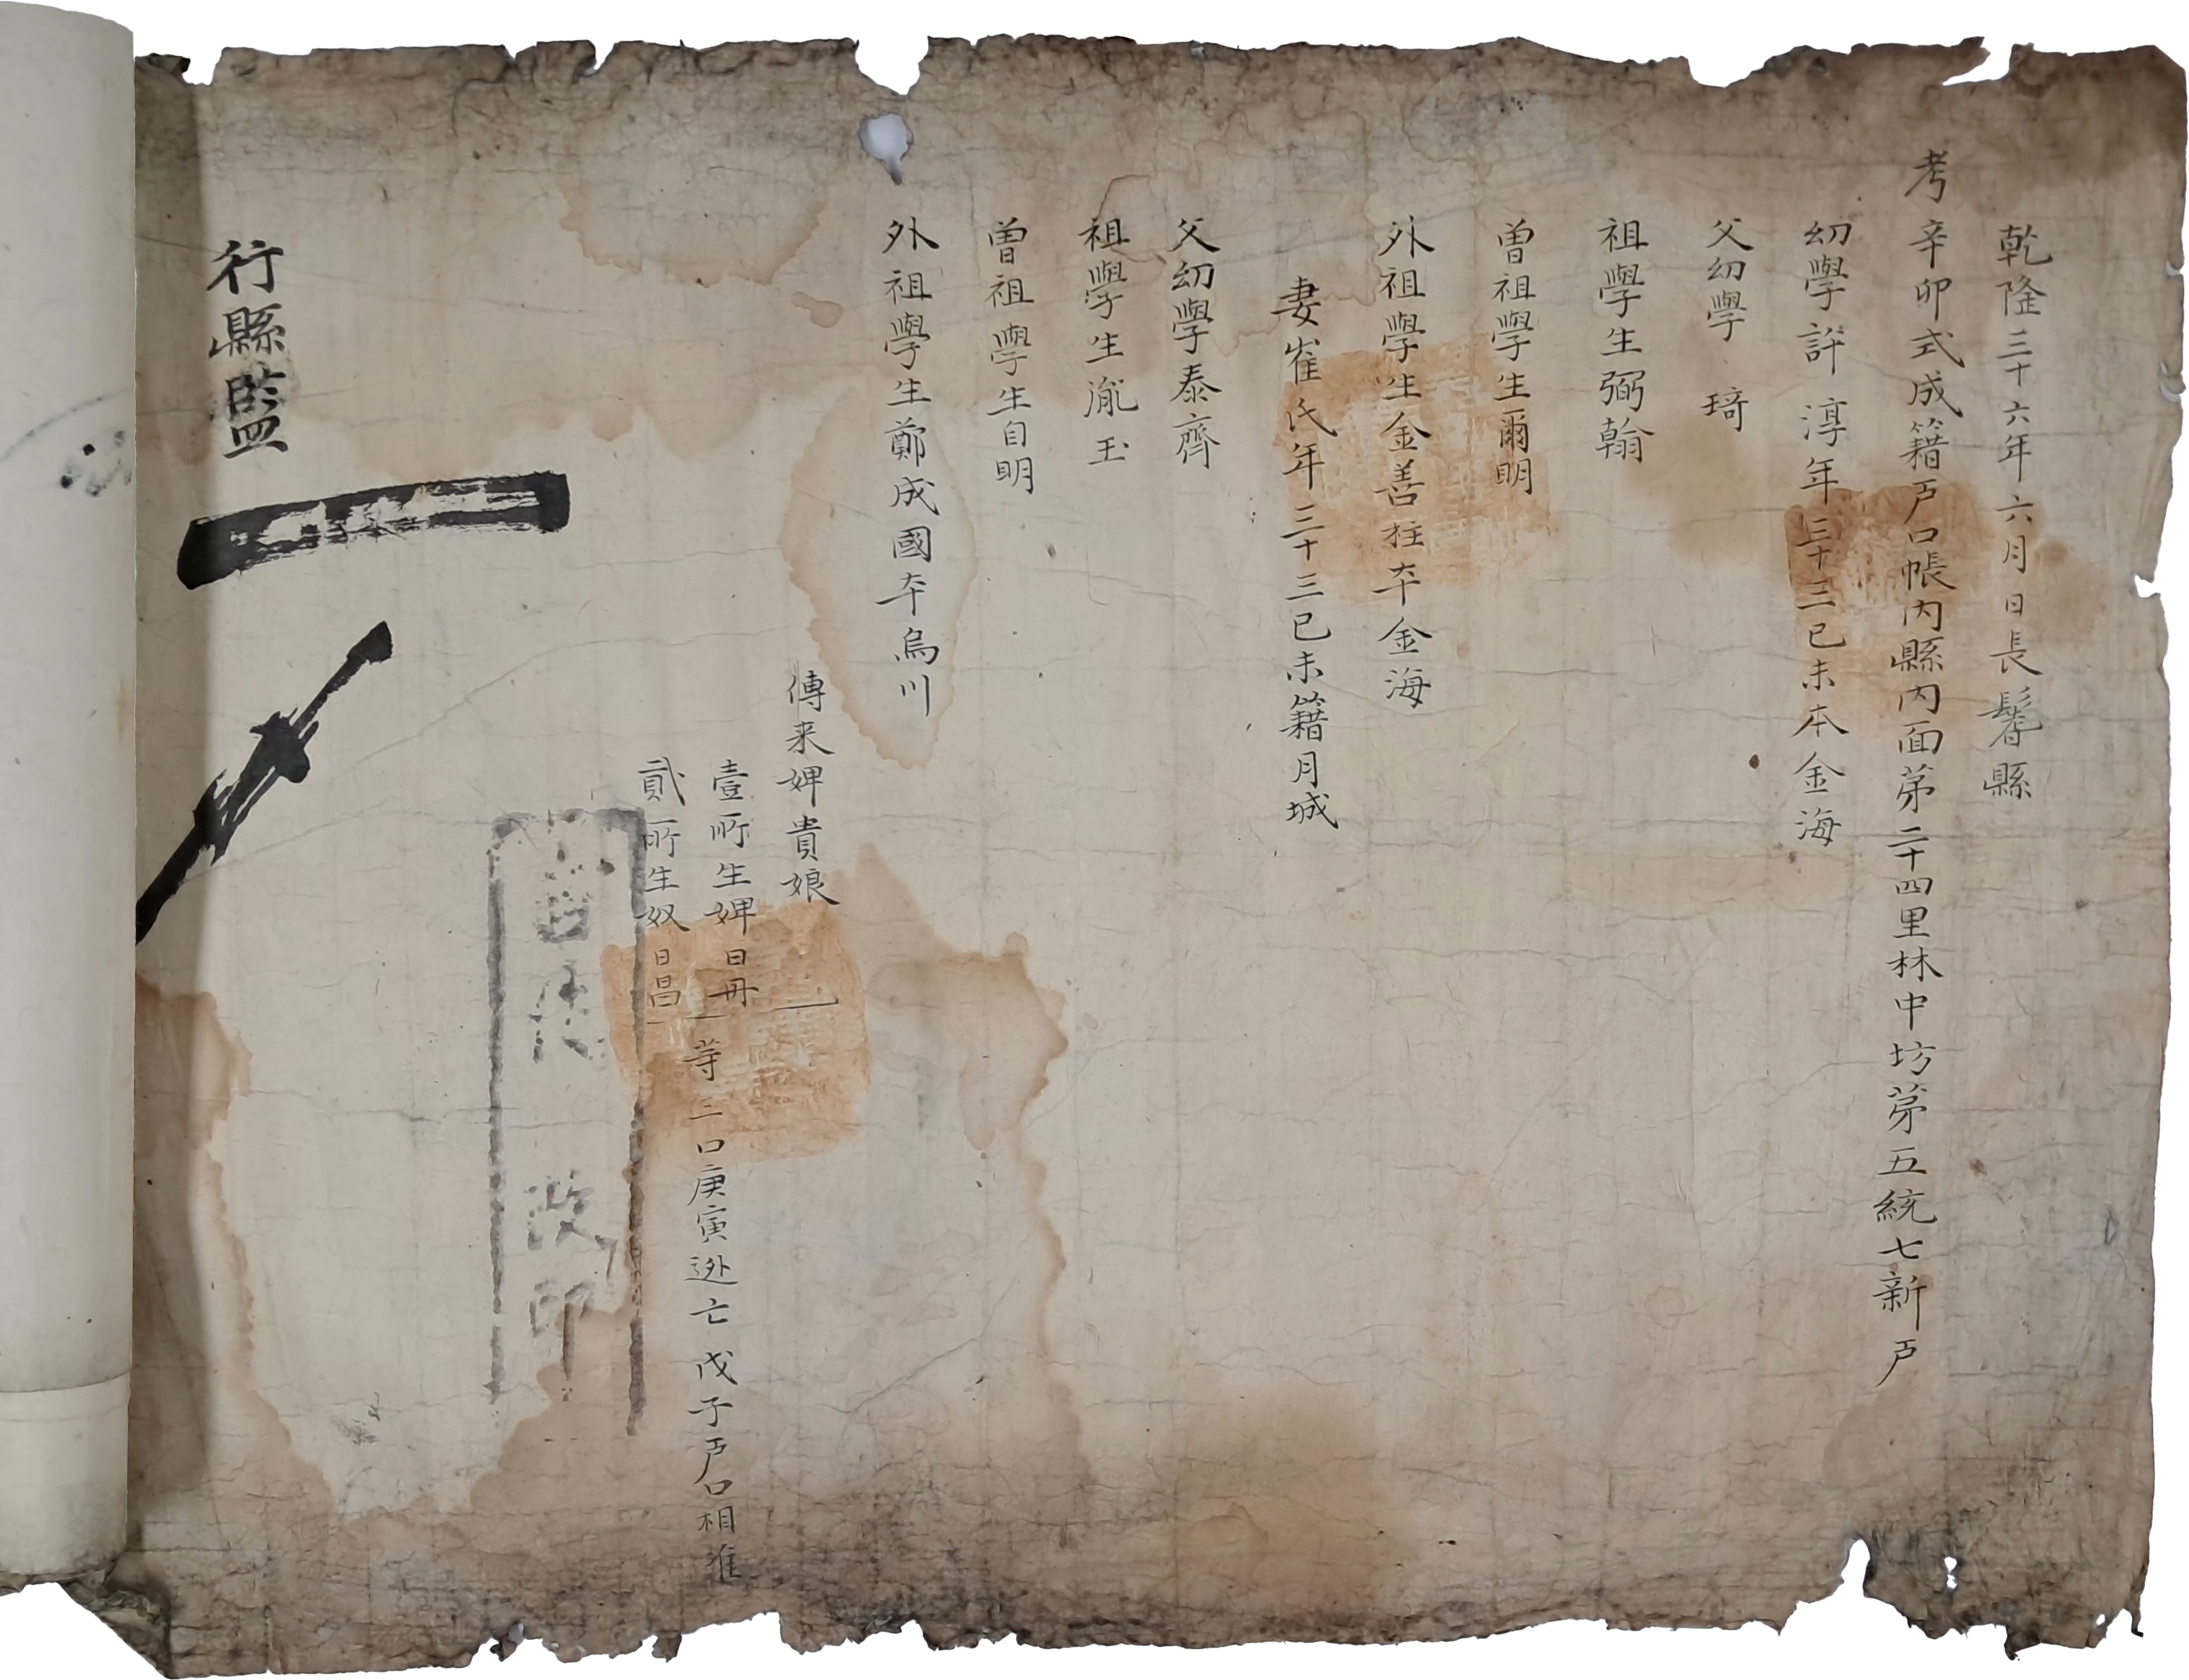 乾隆三十六年六月日長鬐縣
考辛卯式成籍戶口帳內縣內面苐二十四里林中坊苐五統七新戶
幼學許淳年三十三己未本金海
父幼學琦
祖學生弼翰
曾祖學生爾明
外祖學生金善柱夲金海
妻崔氏年三十三己未籍月城
父幼學泰齊
祖學生胤玉
曾祖學生自明
外祖學生鄭成國夲烏川
傳来婢貴娘
壹所生婢日冊
貳所生奴日昌
等三口庚寅逃亡戊子戶口相准
行縣監
改印